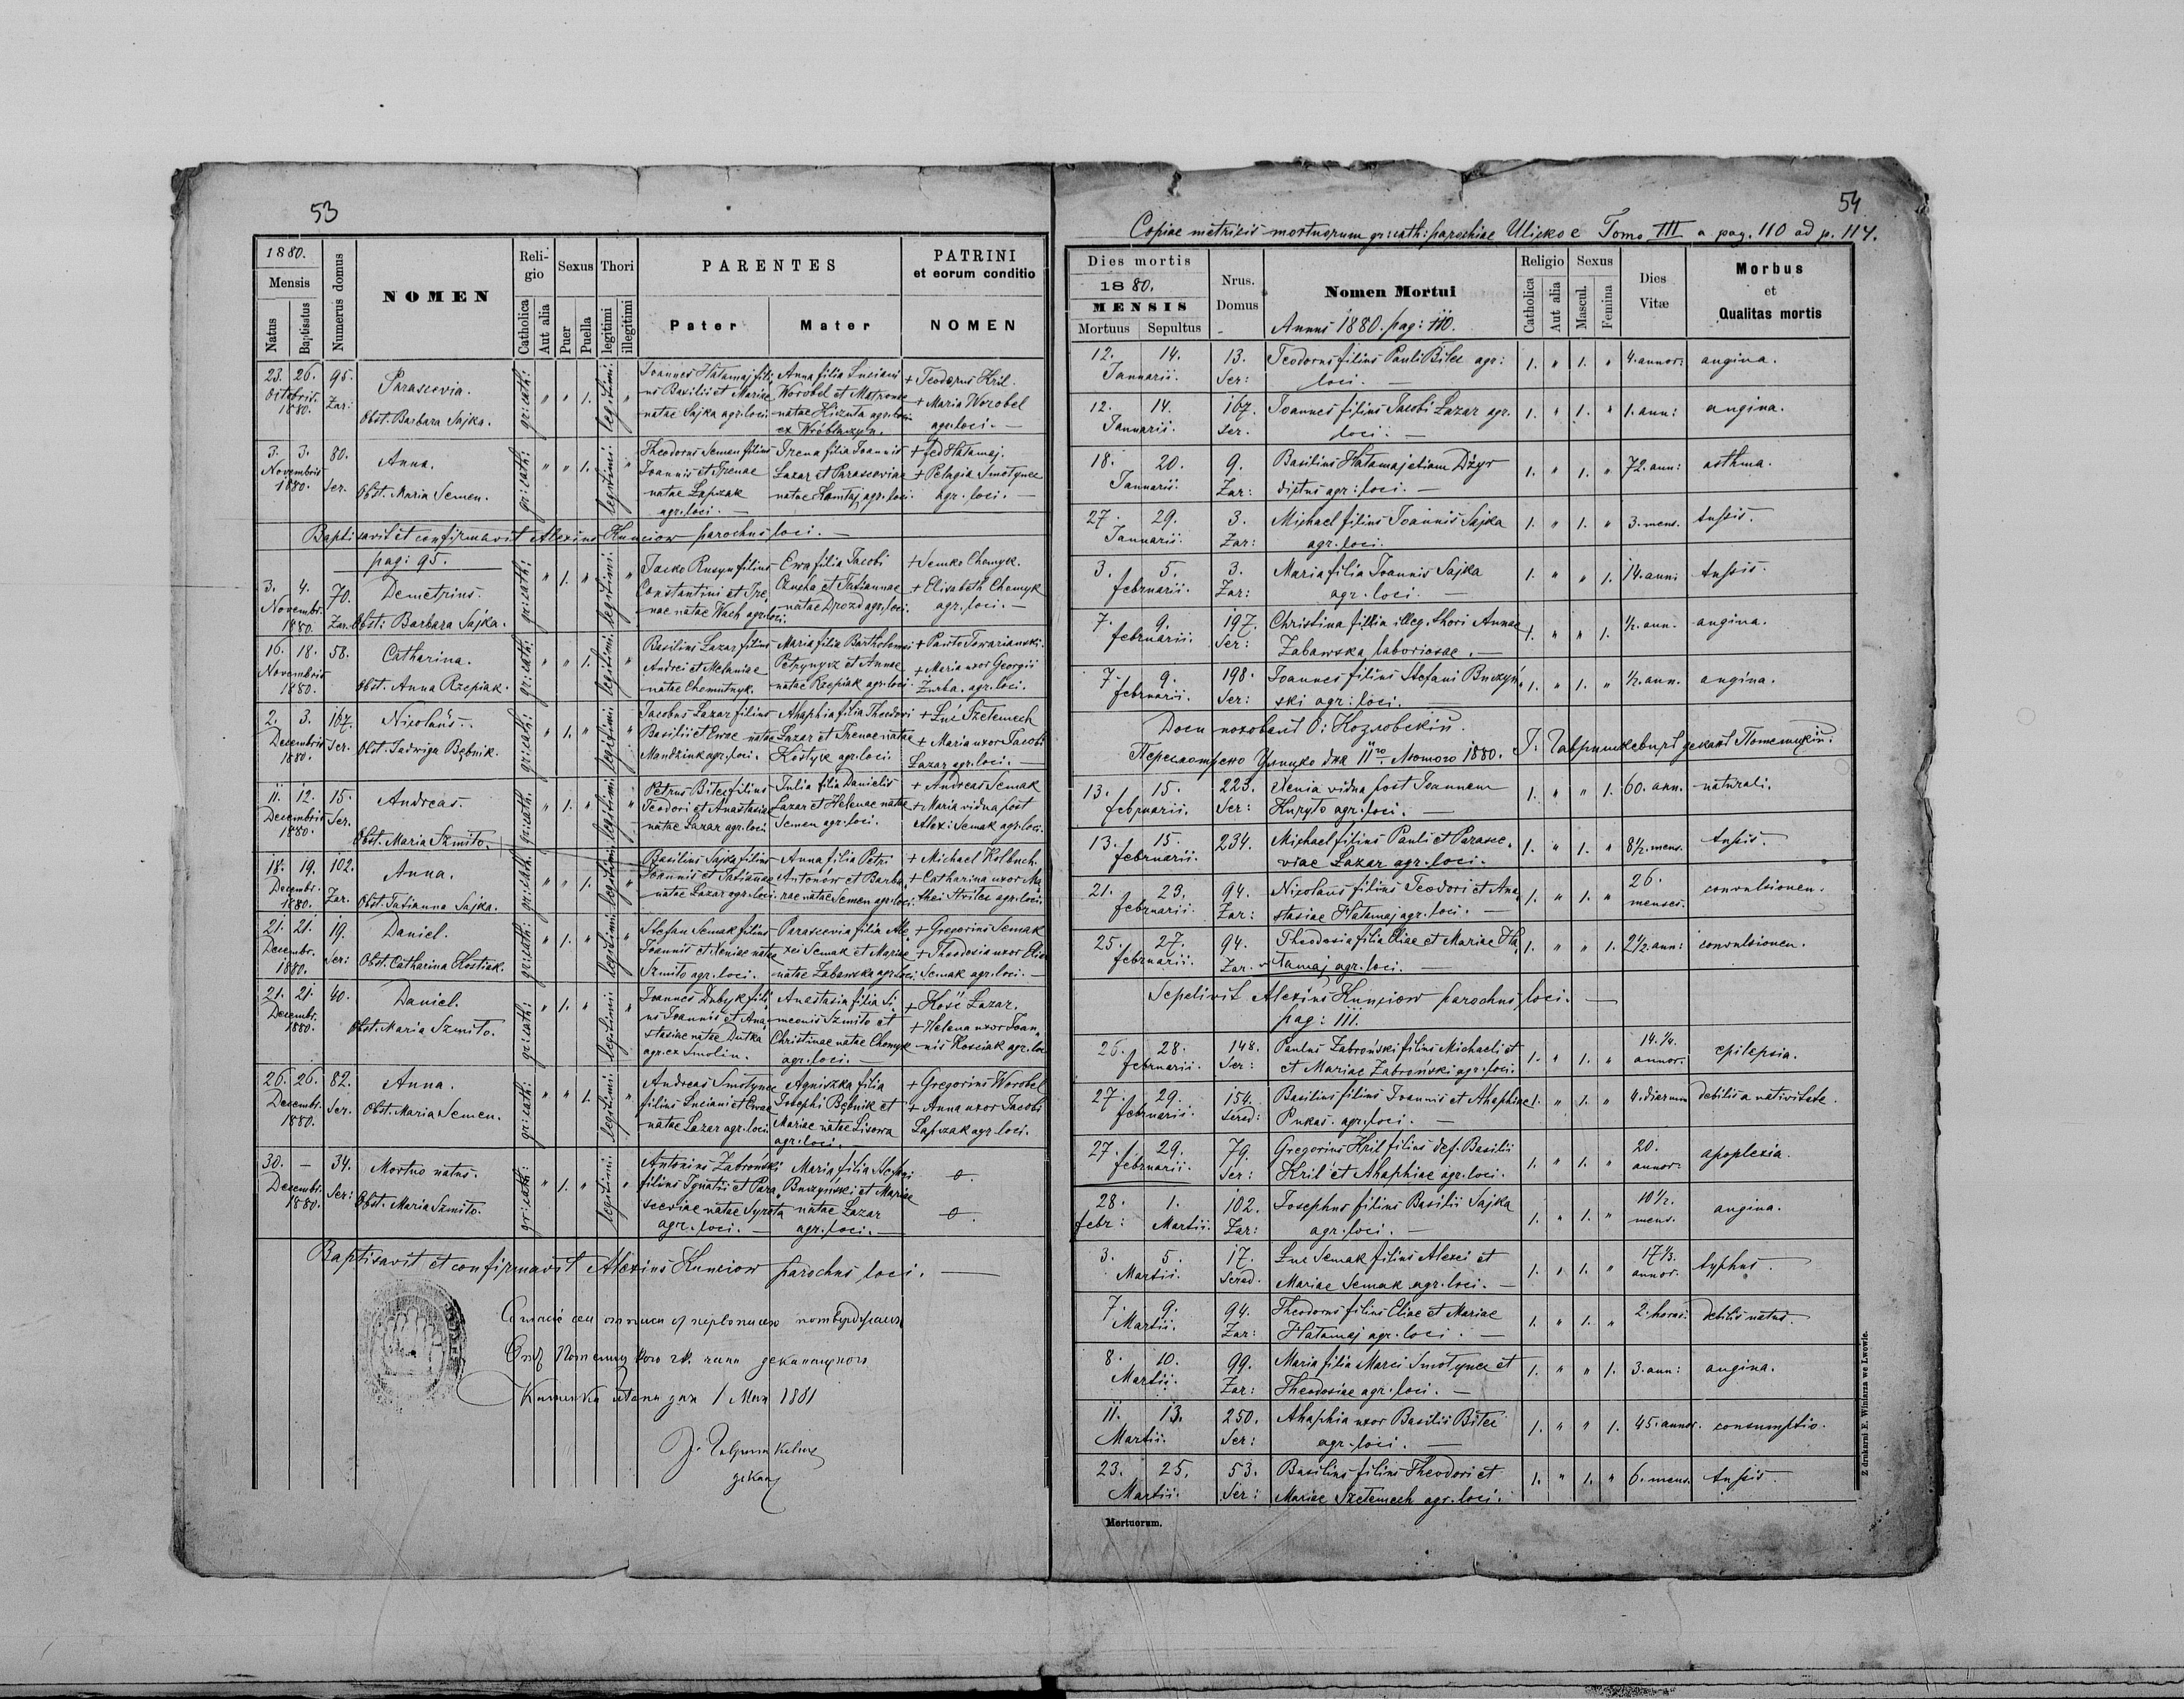 53
1880.
Mensis
Natus
Baptisatus
Numerus domus
NOMEN
Religio
Catholica
Aut alia
Sexus
Puer
Puella
Thori
legitimi
illegitimi
PARENTES
Pater
Mater
PATRINI
et eorum conditio
NOMEN
23. 26. 95.
Octobris. Zar:
1880.
Parascevia.
Obst. Barbara Sajka.
gr: cath: " " 1. legitimi: "
Joannes Hatamaj fili
us Basilii et Mariae
natae Sajka agr. loci
Anna filia Luciani
Worobel et Matronae
natae Hizuta agr. loci
ex Wróblaczyn.
+ Teodorus Kril.
+ Maria Worobel
agr. loci. —
3. 3. 80.
Novembris Ser.
1880.
Anna.
Obst. Maria Semen.
gr: cath: " " 1. legitimi: "
Theodorus Semen filius
Joannis et Irenae
natae Łapczak
agr. loci. —
Irena filia Joannis
Lazar et Parasceviae
natae Hamtaj agr. loci.
+ fed Hatamaj.
+ Pelagia Smotynec
agr. loci. —
Baptisavit et confirmavit Alexius Kunciow parochus loci. —
pag: 95.
3. 4. 70.
Novembr. Zar.
1880.
Demetrius.
Obst: Barbara Sajka.
gr: cath: " 1. " legitimi: "
Jacko Rusyn filius
Constantini et Ire,
nae natae Wach agr. loci.
Ewa filia Jacobi
et Tatiannae
natae Drozd agr. loci.
+ Semko Chomyk.
+ Elisabeth Chomyk
agr. loci. —
16. 18. 58.
Novembris
1880.
Catharina.
Obst. Anna Rzepiak.
gr: cath: " " 1. legitimi: "
Basilius Lazar filius
Andrei et Melaniae
natae Chomutnyk.
Maria filia Bartholomei
Petrynycz et Annae
natae Rzepiak agr. loci.
+ Pawło Towarianski.
+ Maria uxor Georgii
Żurba. agr. loci.
2. 3. 167.
Decembris Ser.
1880.
Nicolaus.
Obst. Jadwiga Bębnik.
gr: cath: " 1. " legitimi: "
Jacobus Lazar filius
Basilii et Ewae natae
Mandziuk agr. loci.
Ahaphia filia Theodori
Lazar et Irenae natae
Kostyk agr. loci
+ Łuć Szetemech
+ Maria uxor Jacobi
Lazar agr. loci. —
11. 12. 15.
Decembris Ser.
1880.
Andreas.
Obst. Maria Szmito.
gr: cath. " 1. " legitimi "
Petrus Bitec filius
Teodori et Anastasiae
natae Lazar agr. loci
Julia filia Danielis
Lazar et Helenae natae
Semen agr. loci.
+ Andreas Semak
+ Maria vidua post
Alexi: Semak agr. loci.
18. 19. 102.
Decembr. Zar.
1880.
Anna.
Obst. Tatianna Sajka.
gr: cath. " " 1. legitimi "
Basilius Sajka filius
Joannis et Tatiannae
natae Lazar agr. loci.
Anna filia Petri
Antonów et Barba,
rae natae Semen agr. loci.
+ Michael Kolbuch.
+ Catharina uxor Ma
thei Hritec agr. loci.
21. 21. 19.
Decembr. Ser:
1880.
Daniel.
Obst. Catharina Kostiak.
gr: cath: " 1. " legitimi "
Stefan Semak filius
Joannis et Xeniae natae
Szmito agr. loci.
Parascevia filia Ale,
xei Semak et Mariae
natae Zabawska agr. loci.
+ Gregorius Semak
+ Theodosia uxor Eliae
Semak agr. loci. —
21. 21. 40.
Decembr.
1880.
Daniel.
Obst. Maria Szmito.
gr: cath: " 1. " legitimi: "
Joannes Dubyk fili
us Joannis et Ana,
stasiae natae Dutka
agr. ex Smolin.
Anastasia filia Si,
meonis Szmito et
Christinae natae Chomyk
agr. loci. —
+ Kość Lazar.
+ Helena uxor Joan,
nis Kosciak agr. loci
26. 26. 82.
Decembr. Ser.
1880.
Anna.
Obst. Maria Semen.
gr: cath: " " 1. legitimi: "
Andreas Smotynec
filius Luciani et Ewae
natae Lazar agr. loci.
Agniszka filia
Josephi Bębnik et
Mariae natae Lisowa
agr. loci. —
+ Gregorius Worobel
+ Anna uxor Jacobi
Łapczak agr loci.
30. — 34.
Decembr. Ser:
1880.
Mortuo natus.
Obst. Maria Szmito.
gr: cath: " 1. " legitimi: "
Antonius Zabroński
filius Ignatii et Para,
sceviae natae Syrota
agr. loci. —
Maria filia Stefani
Buczyński et Mariae
natae Lazar
agr. loci. —
Baptisavit et confirmavit Alexius Kunciow parochus loci. —
1 Мая 1881
54
Copiae metricis mortuorum gr: cath: parochiae Ulicko e Tomo III a pag. 110 ad p. 114.
Dies mortis
1880.
MENSIS
Mortuus
Sepultus
Nrus.
Domus
Nomen Mortui
Annus 1880. pag: 110.
Religio
Catholica
Aut alia
Sexus
Mascul.
Femina
Dies
Vitæ
Morbus
et
Qualitas mortis
12. 14. 13. Teodorus filius Pauli Bitec agr: 1. " 1. " 4. annor: angina.
Januarii. Ser: loci. —
12. 14. 167. Joannes filius Jacobi Lazar agr. 1. " 1. " 1. ann: angina.
Januarii. Ser. loci. —
18. 20. 9. Basilius Hatamaj etiam Dżyr 1. " 1. " 72. ann: asthma.
Januarii. Zar: dictus agr: loci. —
27. 29. 3. Michael filius Joannis Sajka 1. " 1. " 3. mens. tussis.
Januarii. Zar: agr. loci.
3. 5. 3. Maria filia Joannis Sajka 1. " " 1. 14. ann: tussis.
februarii. Zar: agr. loci. —
7. 9. 197. Christina filia illeg. thori Annae 1. " " 1. ½. ann. angina.
februarii. Ser: Zabawska laboriosae. —
7. 9. 198. Joannes filius Stefani Buczyń, 1. " 1. " ½. ann. angina.
februarii. Ser: ski agr: loci.
О: Козловскій.
Улицко дня 11го Лютого 1880.
13. 15. 223. Xenia vidua post Joannem 1. " " 1. 60. ann. naturali.
februarii. Ser: Kuryto agr: loci. —
13. 15. 234. Michael filius Pauli et Parasce, 1. " 1. " 8½. mens. tussis.
februarii. viae Lazar agr. loci.
21. 23. 94. Nicolaus filius Teodori et Ana, 1. " 1. " 26. menses. convulsionen.
februarii. Zar: stasiae Hatamaj agr. loci. —
25. 27. 94. Theodosia filia Eliae et Mariae Ha, 1. " " 1. 2½. ann: convulsionen.
februarii. Zar. tamaj agr. loci. —
Sepelivit Alexius Kunciow parochus loci. —
pag: 111.
26. 28. 148. Paulus Zabroński filius Michaeli et 1. " 1. " 14.¼. annor. epilepsia.
februarii. Ser: et Mariae Zabroński agr. loci.
27. 29. 154. Basilius filius Joannis et Ahaphiae 1. " 1. " 4. dierum debilis a nativitate.
februarii. Sered: Pukas. agr. loci. —
27. 29. 79. Gregorius Kril filius def. Basilii 1. " 1. " 20. annor: apoplexia.
februarii. Ser: Kril et Ahaphiae agr. loci.
28. 1. 102. Josephus filius Basilii Sajka 1. " 1. " 10½. mens. angina.
febr: Martii. Zar: agr. loci. —
3. 5. 17. Łuć Semak filius Alexei et 1. " 1. " 17⅓. annor. typhus.
Martii. Sered. Mariae Semak agr. loci. —
7. 9. 94. Theodorus filius Eliae et Mariae 1. " 1. " 2. horas: debilis natus.
Martii. Zar: Hatamaj agr. loci. —
8. 10. 99. Maria filia Marci Smotynec et 1. " " 1. 3. ann: angina.
Martii. Zar: Theodosiae agr. loci. —
11. 13. 250. Ahaphia uxor Basilii Bitec 1. " " 1. 45. annor. consumptio.
Martii. Ser: agr. loci. —
23. 25. 53. Basilius filius Theodori et 1. " 1. " 6. mens. tussis.
Martii. Ser: Mariae Szetemech agr. loci.
Mortuorum.
Z drukarni E. Winiarza we Lwowie.